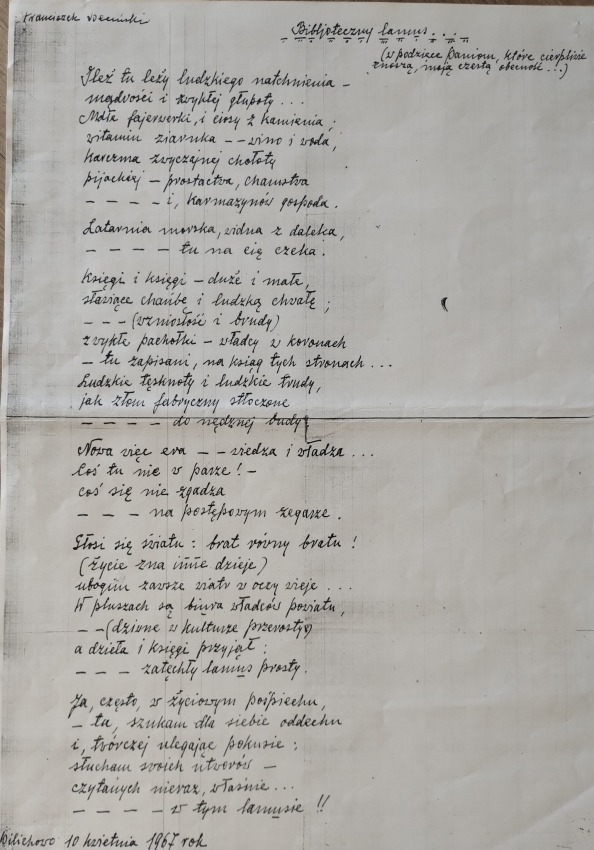 Franciszek
Bibljoteczny lamus...
(w podzięce Paniom, które cierpliwie
znoszą, moją częstą obecność...)
Ileż tu leży ludzkiego natchnienia –
mądrości i zwykłej głupoty...
Małe fajerwerki, i ciosy z kamienia;
witamin ziarnka – – wino i woda,
Karczma zwyczajnej hołoty
pijackiej – prostactwa, chamstwa
– – – – i, karmazynów gospoda.
Latarnia morska, widna z daleka,
– – – – tu na cię czeka.
Księgi i księgi – duże i małe,
sławiące hańbę i ludzką chwałę;
– – – (wzniosłość i brudy)
zwykłe pachołki – władcy w koronach
– tu zapisani, na ksiąg tych stronach...
Ludzkie tęsknoty i ludzkie trudy,
jak złom fabryczny stłoczone
– – – – do nędznej budy
Nowa więc era – – wiedza i władza...
Coś tu nie w parze! –
coś się nie zgadza
– – – na postępowym zegarze.
Głosi się światu: brat równy bratu!
(życie zna inne dzieje)
ubogim zawsze wiatr w oczy wieje...
W pluszach są biura władców powiatu,
– – (dziwne w kulturze przerosty)
a dzieła i księgi przyjął:
– – – zatęchły lamus prosty.
Ja, często, w życiowym pośpiechu,
– tu, szukam dla siebie oddechu
i, twórczej ulegając pokusie:
słucham swoich utworów –
czytanych nieraz, właśnie...
– – – – w tym lamusie!!
10 kwietnia 1967 rok